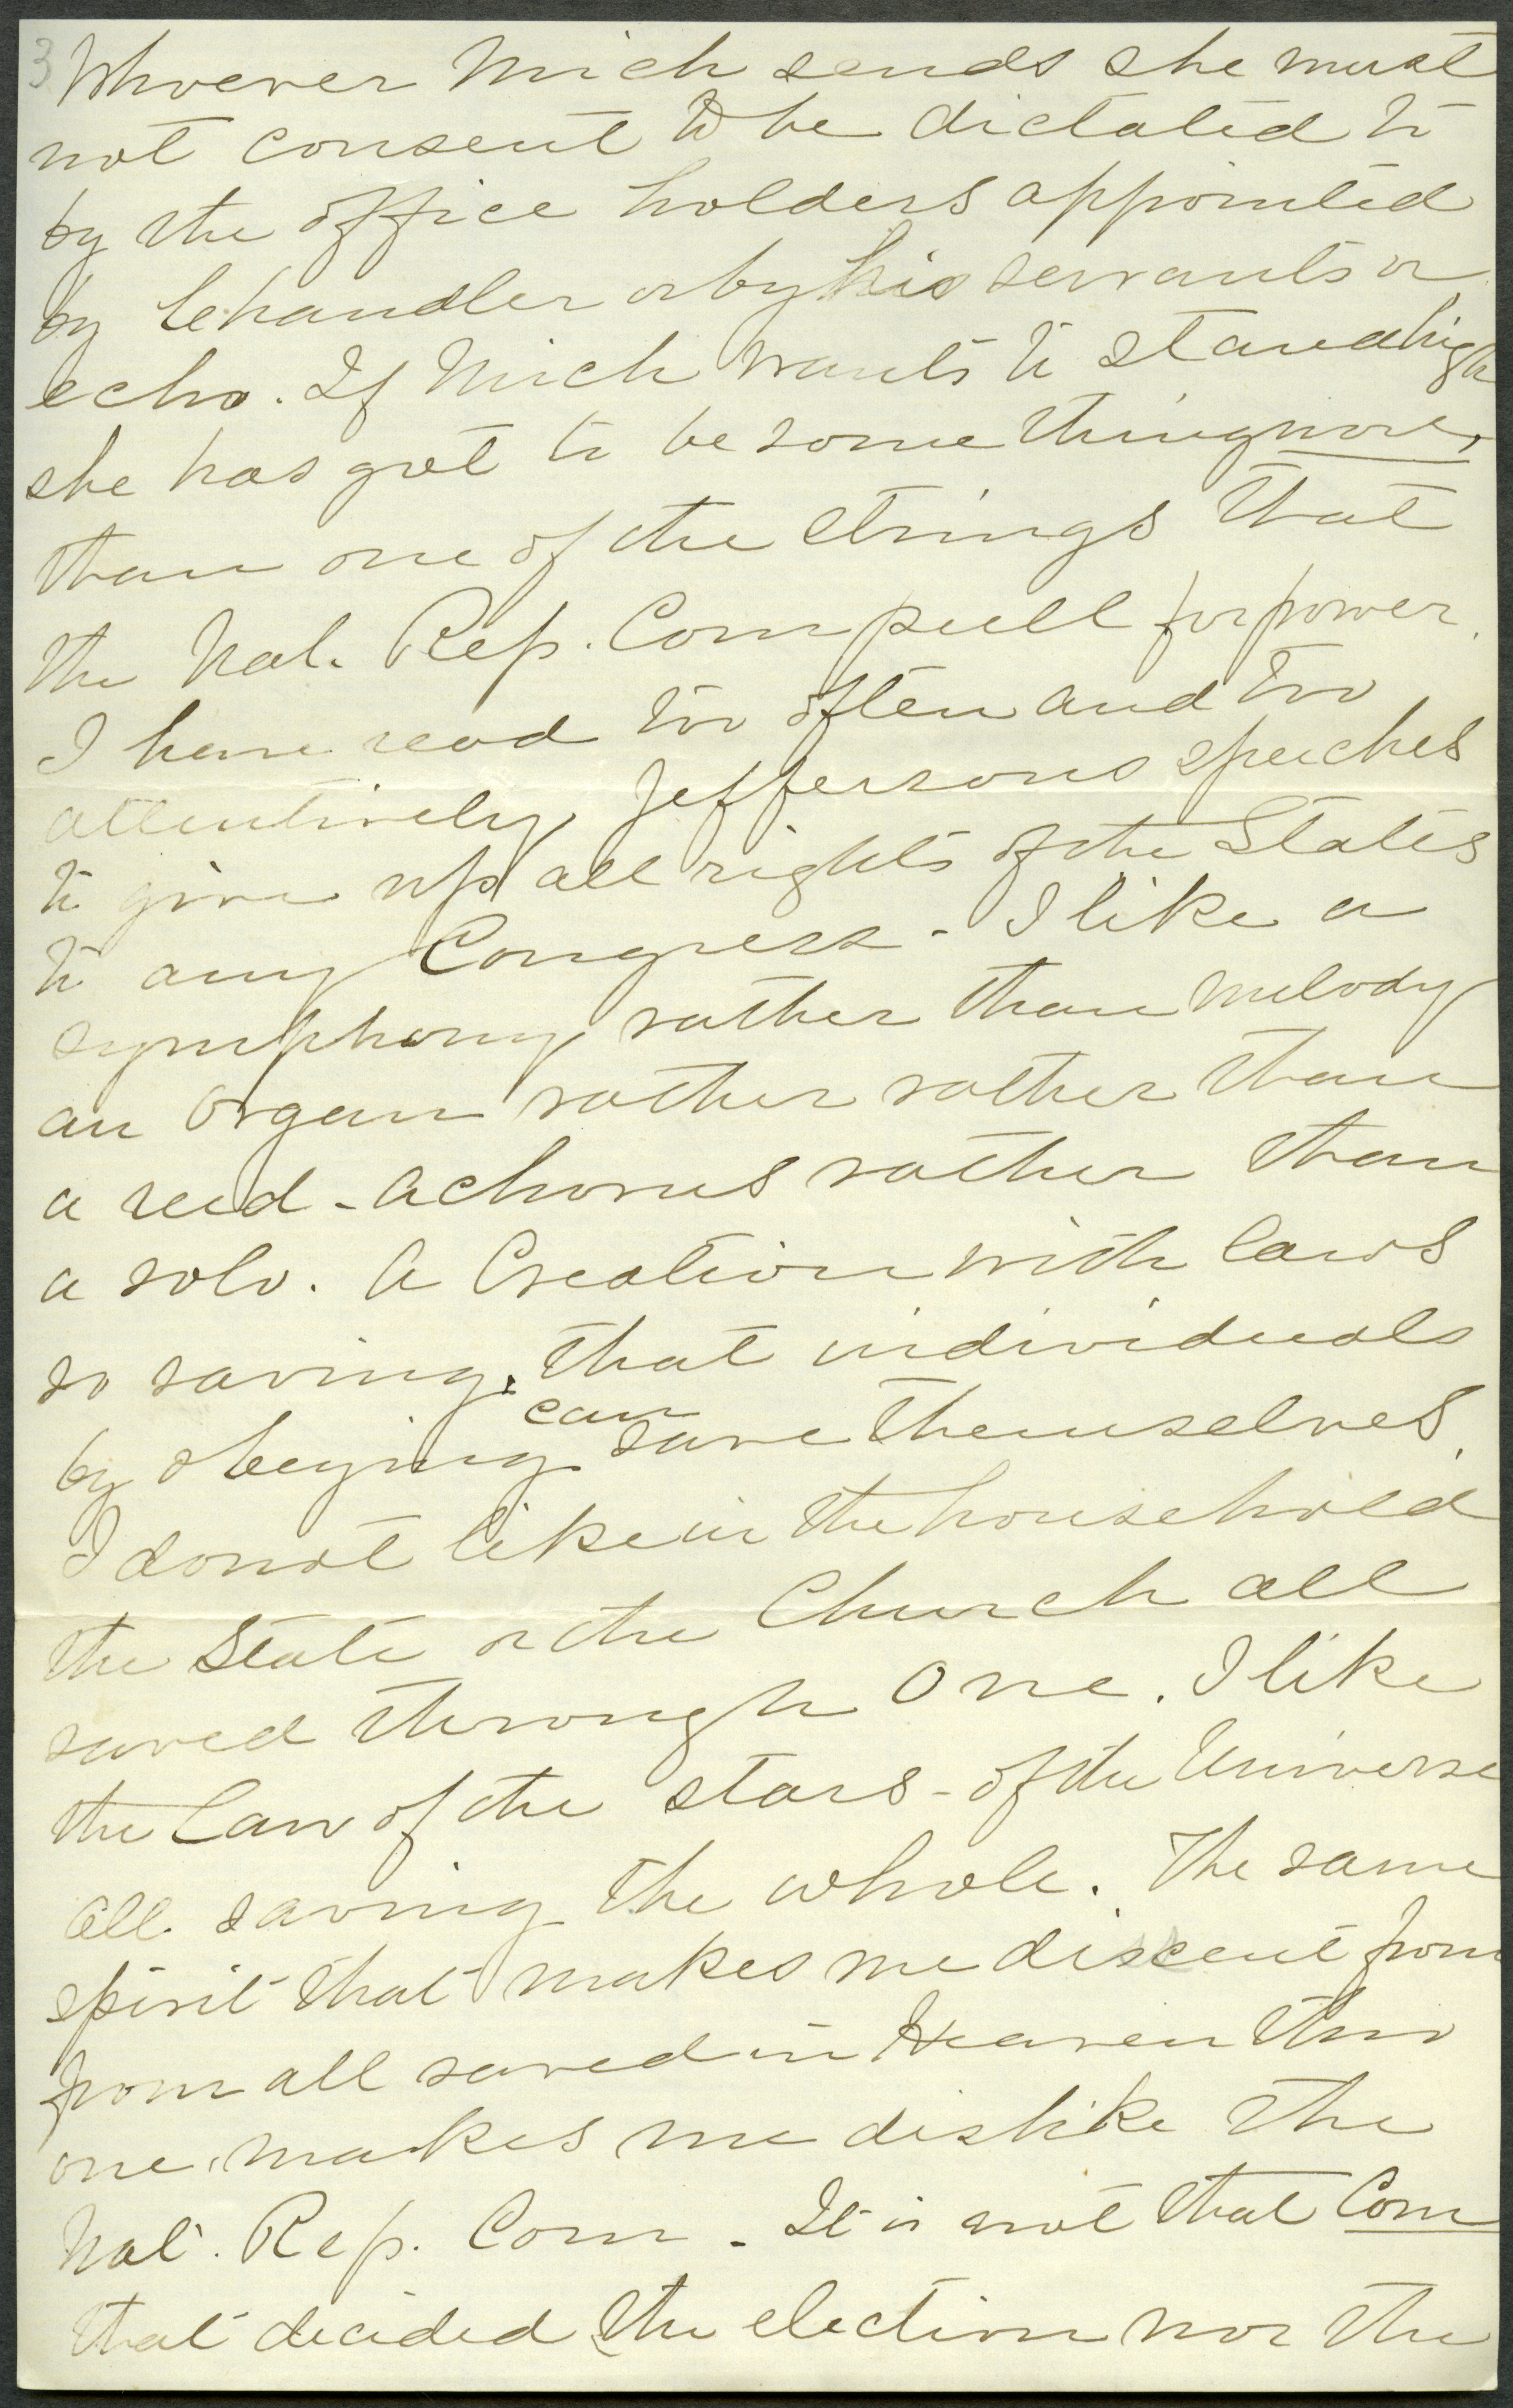 3 Whoever Mich sends she must
not consent to be dictated to
by the office holders appointed
by Chandler or by his servants or
echo. If Mich wants to stand high
she has got to be something more,
than one of the strings that
the Nat. Rep. Com pull for power.
I have read too often and too
attentively Jeffersons speeches
to give up all rights of the States
to any Congress - I like a
symphony rather than melody
an Organ rather rather than
a reed - a chorus rather than
a solo. A Creation with laws
so saving, that individuals
by obeying can save themselves.
I do not like in the household
the State or the Church all
saved through One. I like
the Law of the stars - of the Universe
all saving the whole. The same
spirit that makes me discent from
from all saved in Heaven thro
one, makes me dislike the
Nat. Rep. Com - It is not that Com
that decided the election nor the